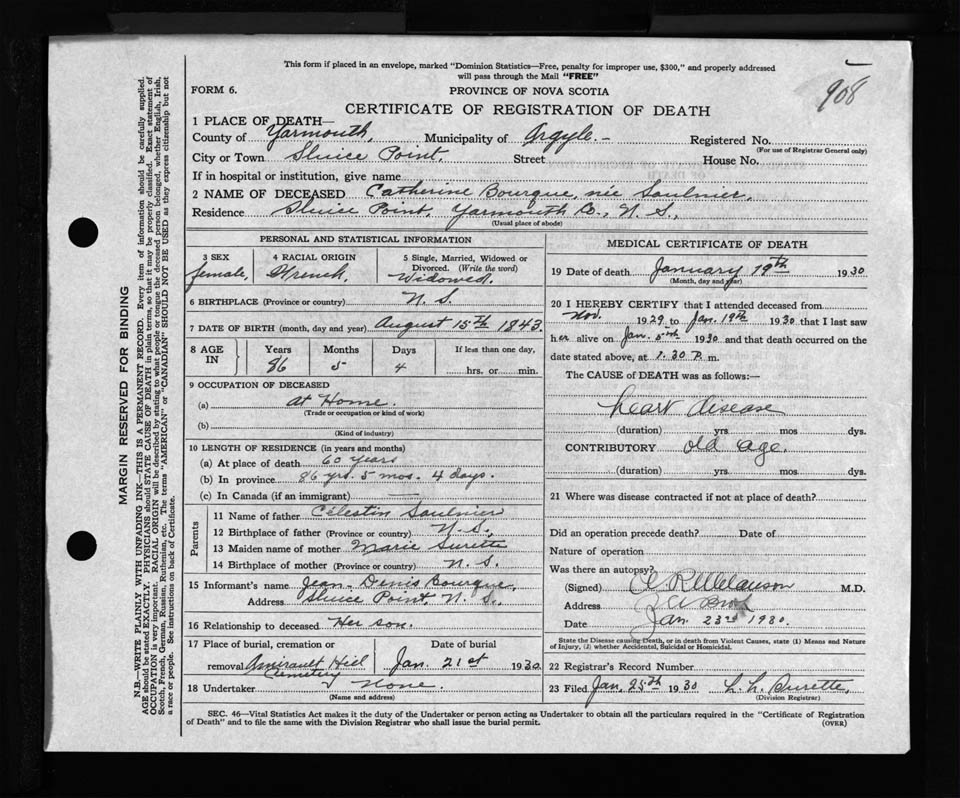 This form if placed in an envelope, marked "Dominion Statistics—Free, penalty for improper use, $300," and properly addressed
will pass through the Mail "FREE"
908
FORM 6.
PROVINCE OF NOVA SCOTIA
CERTIFICATE OF REGISTRATION OF DEATH
1 PLACE OF DEATH—
County of Yarmouth, Municipality of Argyle.- Registered No.
(For use of Registrar General only)
City or Town Sluice Point, Street House No.
If in hospital or institution, give name
2 NAME OF DECEASED Catherine Bourque, née Saulnier,
Residence Sluice Point, Yarmouth Co., N. S.,
(Usual place of abode)
PERSONAL AND STATISTICAL INFORMATION
3 SEX
female,
4 RACIAL ORIGIN
French,
5 Single, Married, Widowed or
Divorced. (Write the word)
Widowed.
6 BIRTHPLACE (Province or country) N. S.
7 DATE OF BIRTH (month, day and year) August 15th 1843.
8 AGE IN
Years Months Days If less than one day,
86 5 4 hrs. or min.
9 OCCUPATION OF DECEASED
(a) at Home.
(Trade or occupation or kind of work)
(b)
(Kind of industry)
10 LENGTH OF RESIDENCE (in years and months)
(a) At place of death 60 years
(b) In province 86 yrs. 5 mos. 4 days.
(c) In Canada (if an immigrant) —
Parents
11 Name of father Célestin Saulnier
12 Birthplace of father (Province or country) N. S.
13 Maiden name of mother Marie Surette
14 Birthplace of mother (Province or country) N. S.
15 Informant's name Jean-Denis Bourque,
Address Sluice Point, N. S.,
16 Relationship to deceased Her son.
17 Place of burial, cremation or Date of burial
removal Amirault Hill Cemetery Jan. 21st 1930
18 Undertaker None.
(Name and address)
MEDICAL CERTIFICATE OF DEATH
19 Date of death January 19th 1930
(Month, day and year)
20 I HEREBY CERTIFY that I attended deceased from
Nov. 1929 to Jan. 19th 1930 that I last saw
her alive on Jan. 1930 and that death occurred on the
date stated above, at 1.30 P. m.
The CAUSE OF DEATH was as follows:—
heart disease
(duration) yrs mos dys.
CONTRIBUTORY old age.
(duration) yrs. mos. dys.
21 Where was disease contracted if not at place of death?
Did an operation precede death? Date of
Nature of operation
Was there an autopsy?
(Signed) Melanson M.D.
Address
Date Jan. 23rd 1930.
State the Disease causing Death, or in death from Violent Causes, state (1) Means and Nature
of Injury, (2) whether Accidental, Suicidal or Homicidal.
22 Registrar's Record Number
23 Filed Jan. 25th 1930 Surette,
(Division Registrar)
SEC. 46—Vital Statistics Act makes it the duty of the Undertaker or person acting as Undertaker to obtain all the particulars required in the "Certificate of Registration
of Death" and to file the same with the Division Registrar who shall issue the burial permit. (OVER)
MARGIN RESERVED FOR BINDING
N.B.—WRITE PLAINLY WITH UNFADING INK—THIS IS A PERMANENT RECORD. Every item of information should be carefully supplied.
AGE should be stated EXACTLY. PHYSICIANS should STATE CAUSE OF DEATH in plain terms, so that it may be properly classified. Exact statement of
OCCUPATION is very important. RACIAL ORIGIN will be described by stating to what people or tongue the deceased person belonged, whether English, Irish,
Scotch, French, German, Russian, Ruthenian, etc. The terms "AMERICAN" or "CANADIAN" SHOULD NOT BE USED as they express citizenship but not
a race or people. See instructions on back of Certificate.